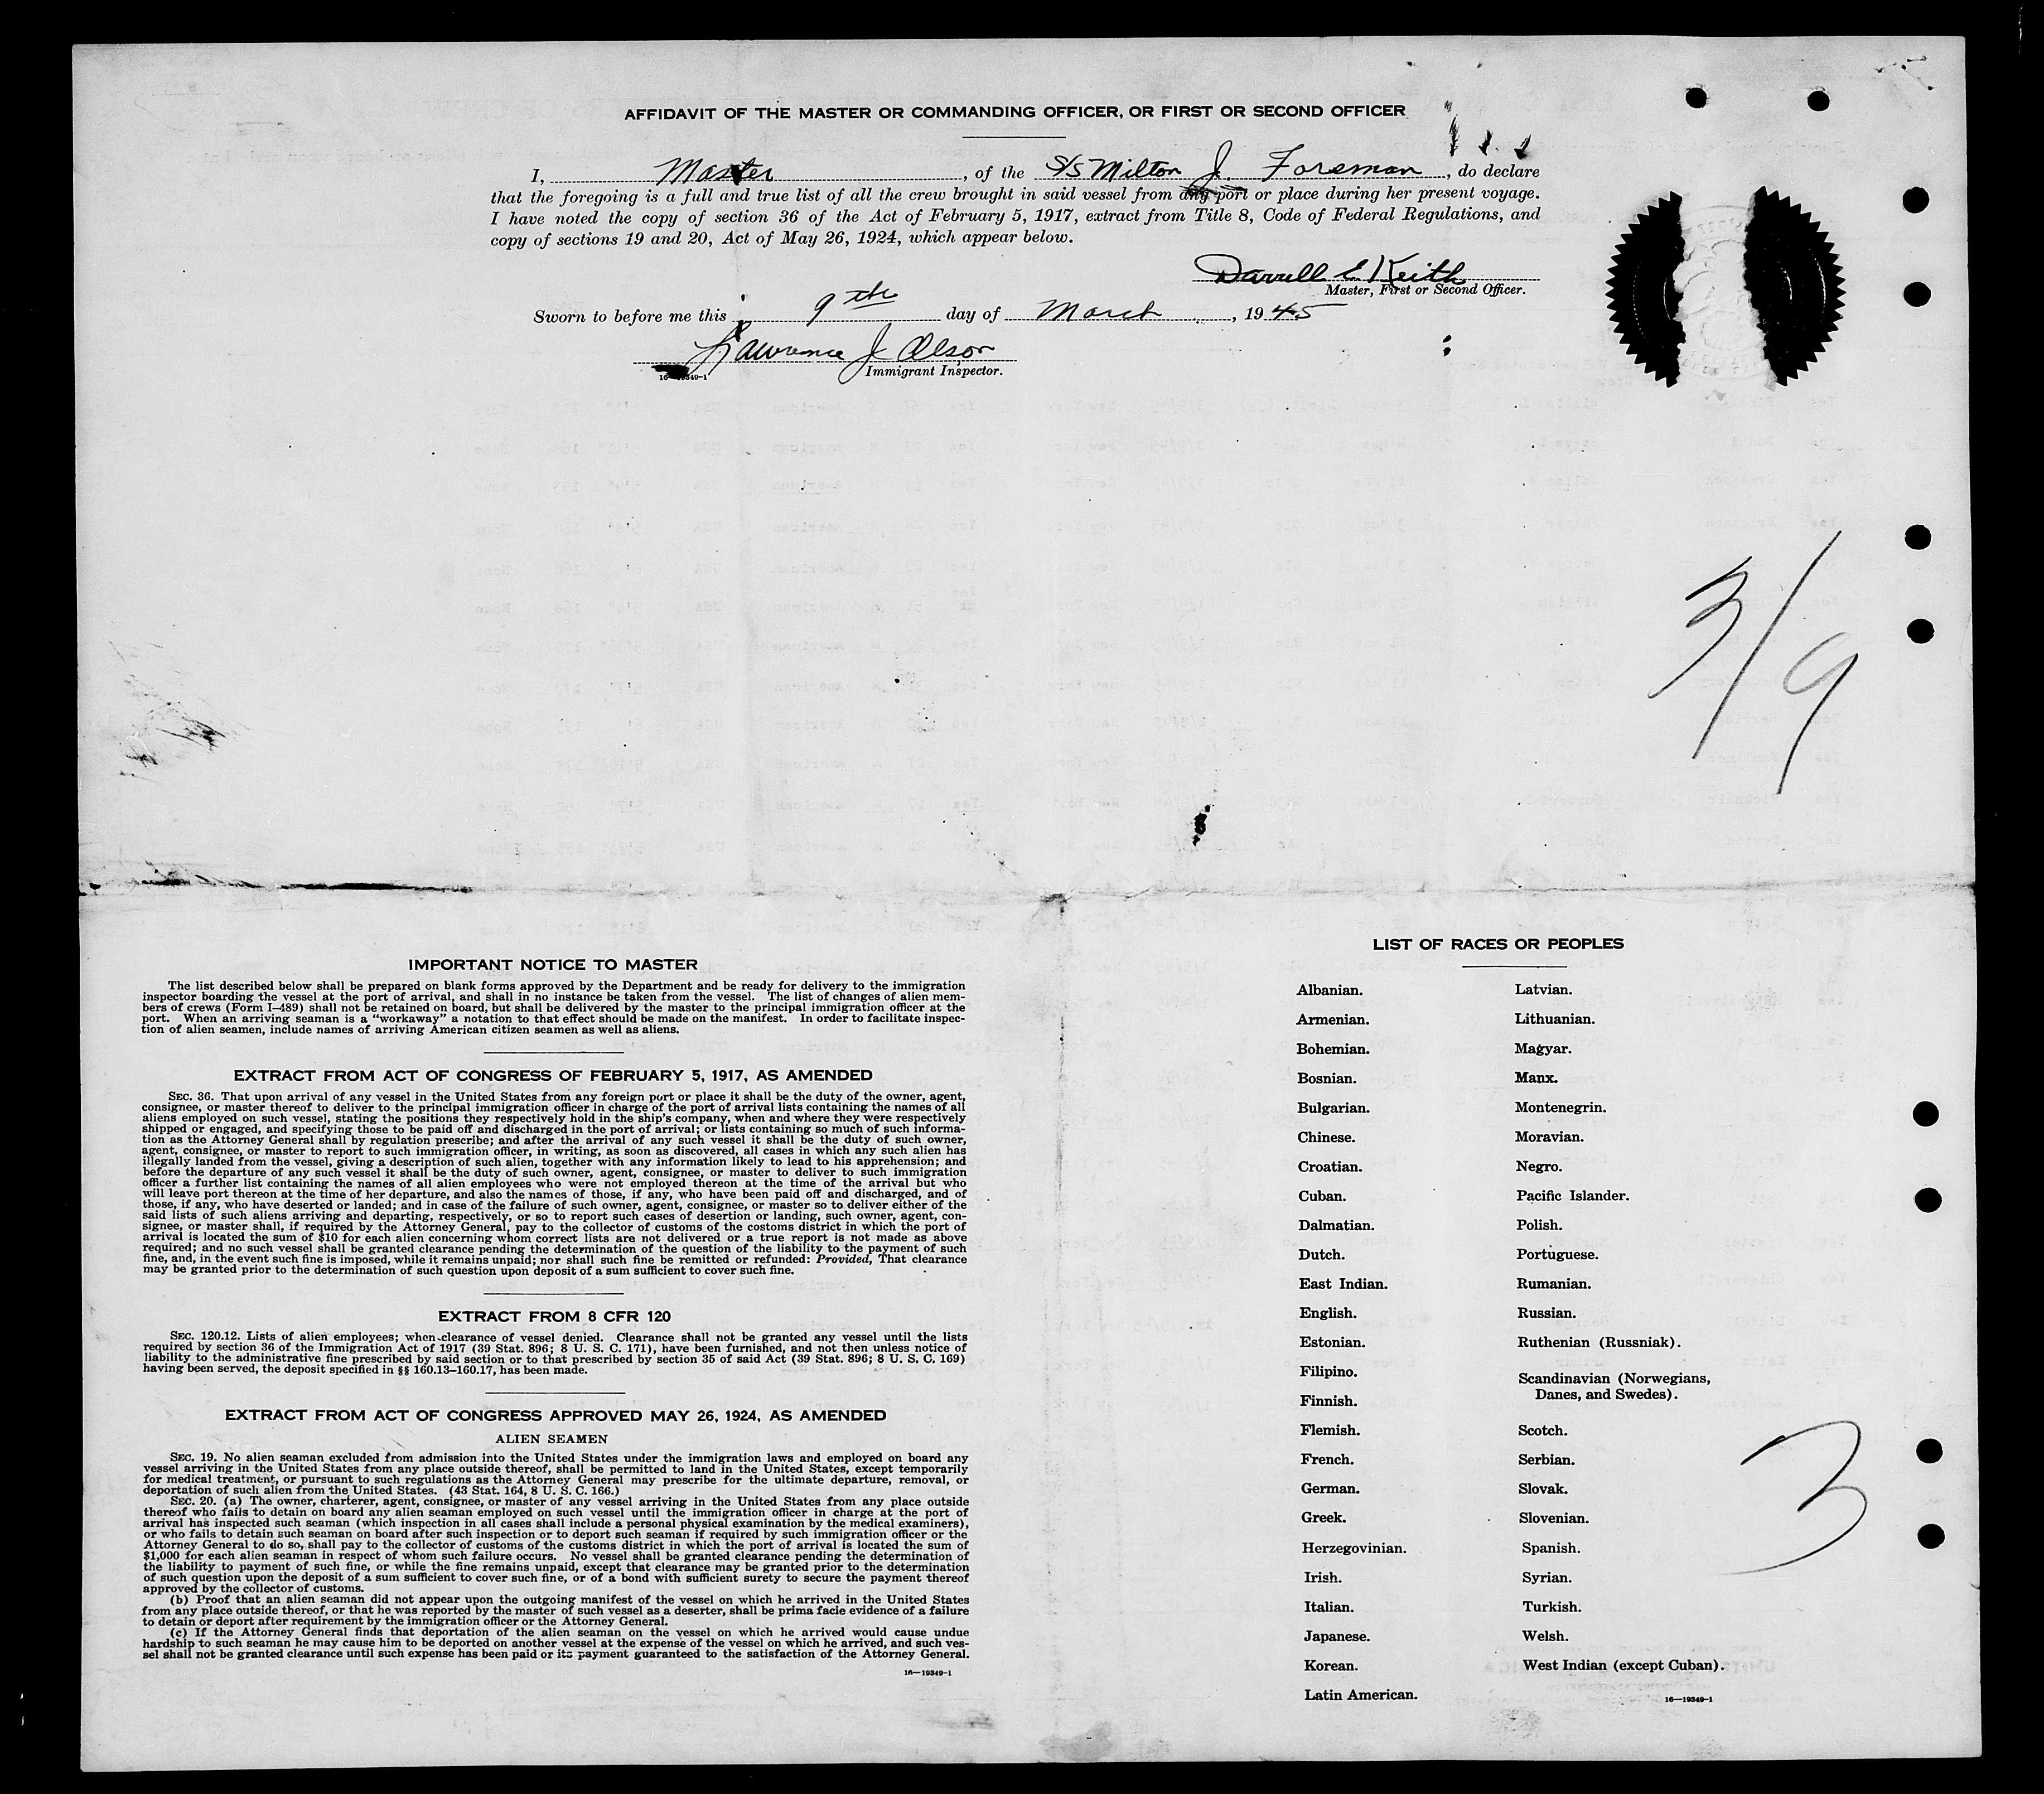 AFFIDAVIT OF THE MASTER OR COMMANDING OFFICER, OR FIRST OR SECOND OFFICER
I, Master, of the S/S Milton J. Foreman, do declare
that the foregoing is a full and true list of all the crew brought in said vessel from any port or place during her present voyage.
I have noted the copy of section 36 of the Act of February 5, 1917, extract from Title 8, Code of Federal Regulations, and
copy of sections 19 and 20, Act of May 26, 1924, which appear below.
Darrell E Keith
Master, First or Second Officer.
Sworn to before me this 9th day of March, 1945
Lawrence J Olson
16-19349-1 Immigrant Inspector.
3/9
IMPORTANT NOTICE TO MASTER
The list described below shall be prepared on blank forms approved by the Department and be ready for delivery to the immigration
inspector boarding the vessel at the port of arrival, and shall in no instance be taken from the vessel. The list of changes of alien mem-
bers of crews (Form I-489) shall not be retained on board, but shall be delivered by the master to the principal immigration officer at the
port. When an arriving seaman is a "workaway" a notation to that effect should be made on the manifest. In order to facilitate inspec-
tion of alien seamen, include names of arriving American citizen seamen as well as aliens.
EXTRACT FROM ACT OF CONGRESS OF FEBRUARY 5, 1917, AS AMENDED
SEC. 36. That upon arrival of any vessel in the United States from any foreign port or place it shall be the duty of the owner, agent,
consignee, or master thereof to deliver to the principal immigration officer in charge of the port of arrival lists containing the names of all
aliens employed on such vessel, stating the positions they respectively hold in the ship's company, when and where they were respectively
shipped or engaged, and specifying those to be paid off and discharged in the port of arrival; or lists containing so much of such informa-
tion as the Attorney General shall by regulation prescribe; and after the arrival of any such vessel it shall be the duty of such owner,
agent, consignee, or master to report to such immigration officer, in writing, as soon as discovered, all cases in which any such alien has
illegally landed from the vessel, giving a description of such alien, together with any information likely to lead to his apprehension; and
before the departure of any such vessel it shall be the duty of such owner, agent, consignee, or master to deliver to such immigration
officer a further list containing the names of all alien employees who were not employed thereon at the time of the arrival but who
will leave port thereon at the time of her departure, and also the names of those, if any, who have been paid off and discharged, and of
those, if any, who have deserted or landed; and in case of the failure of such owner, agent, consignee, or master so to deliver either of the
said lists of such aliens arriving and departing, respectively, or so to report such cases of desertion or landing, such owner, agent, con-
signee, or master shall, if required by the Attorney General, pay to the collector of customs of the costoms district in which the port of
arrival is located the sum of $10 for each alien concerning whom correct lists are not delivered or a true report is not made as above
required; and no such vessel shall be granted clearance pending the determination of the question of the liability to the payment of such
fine, and, in the event such fine is imposed, while it remains unpaid; nor shall such fine be remitted or refunded: Provided, That clearance
may be granted prior to the determination of such question upon deposit of a sum sufficient to cover such fine.
EXTRACT FROM 8 CFR 120
SEC. 120.12. Lists of alien employees; when clearance of vessel denied. Clearance shall not be granted any vessel until the lists
required by section 36 of the Immigration Act of 1917 (39 Stat. 896; 8 U. S. C. 171), have been furnished, and not then unless notice of
liability to the administrative fine prescribed by said section or to that prescribed by section 35 of said Act (39 Stat. 896; 8 U. S. C. 169)
having been served, the deposit specified in §§ 160.13-160.17, has been made.
EXTRACT FROM ACT OF CONGRESS APPROVED MAY 26, 1924, AS AMENDED
ALIEN SEAMEN
SEC. 19. No alien seaman excluded from admission into the United States under the immigration laws and employed on board any
vessel arriving in the United States from any place outside thereof, shall be permitted to land in the United States, except temporarily
for medical treatment, or pursuant to such regulations as the Attorney General may prescribe for the ultimate departure, removal, or
deportation of such alien from the United States. (43 Stat. 164, 8 U. S. C. 166.)
SEC. 20. (a) The owner, charterer, agent, consignee, or master of any vessel arriving in the United States from any place outside
thereof who fails to detain on board any alien seaman employed on such vessel until the immigration officer in charge at the port of
arrival has inspected such seaman (which inspection in all cases shall include a personal physical examination by the medical examiners),
or who fails to detain such seaman on board after such inspection or to deport such seaman if required by such immigration officer or the
Attorney General to do so, shall pay to the collector of customs of the customs district in which the port of arrival is located the sum of
$1,000 for each alien seaman in respect of whom such failure occurs. No vessel shall be granted clearance pending the determination of
the liability to payment of such fine, or while the fine remains unpaid, except that clearance may be granted prior to the determination
of such question upon the deposit of a sum sufficient to cover such fine, or of a bond with sufficient surety to secure the payment thereof
approved by the collector of customs.
(b) Proof that an alien seaman did not appear upon the outgoing manifest of the vessel on which he arrived in the United States
from any place outside thereof, or that he was reported by the master of such vessel as a deserter, shall be prima facie evidence of a failure
to detain or deport after requirement by the immigration officer or the Attorney General.
(c) If the Attorney General finds that deportation of the alien seaman on the vessel on which he arrived would cause undue
hardship to such seaman he may cause him to be deported on another vessel at the expense of the vessel on which he arrived, and such ves-
sel shall not be granted clearance until such expense has been paid or its payment guaranteed to the satisfaction of the Attorney General.
16-19349-1
LIST OF RACES OR PEOPLES
Albanian.
Armenian.
Bohemian.
Bosnian.
Bulgarian.
Chinese.
Croatian.
Cuban.
Dalmatian.
Dutch.
East Indian.
English.
Estonian.
Filipino.
Finnish.
Flemish.
French.
German.
Greek.
Herzegovinian.
Irish.
Italian.
Japanese.
Korean.
Latin American.
Latvian.
Lithuanian.
Magyar.
Manx.
Montenegrin.
Moravian.
Negro.
Pacific Islander.
Polish.
Portuguese.
Rumanian.
Russian.
Ruthenian (Russniak).
Scandinavian (Norwegians,
Danes, and Swedes).
Scotch.
Serbian.
Slovak.
Slovenian.
Spanish.
Syrian.
Turkish.
Welsh.
West Indian (except Cuban).
16-19349-1
3